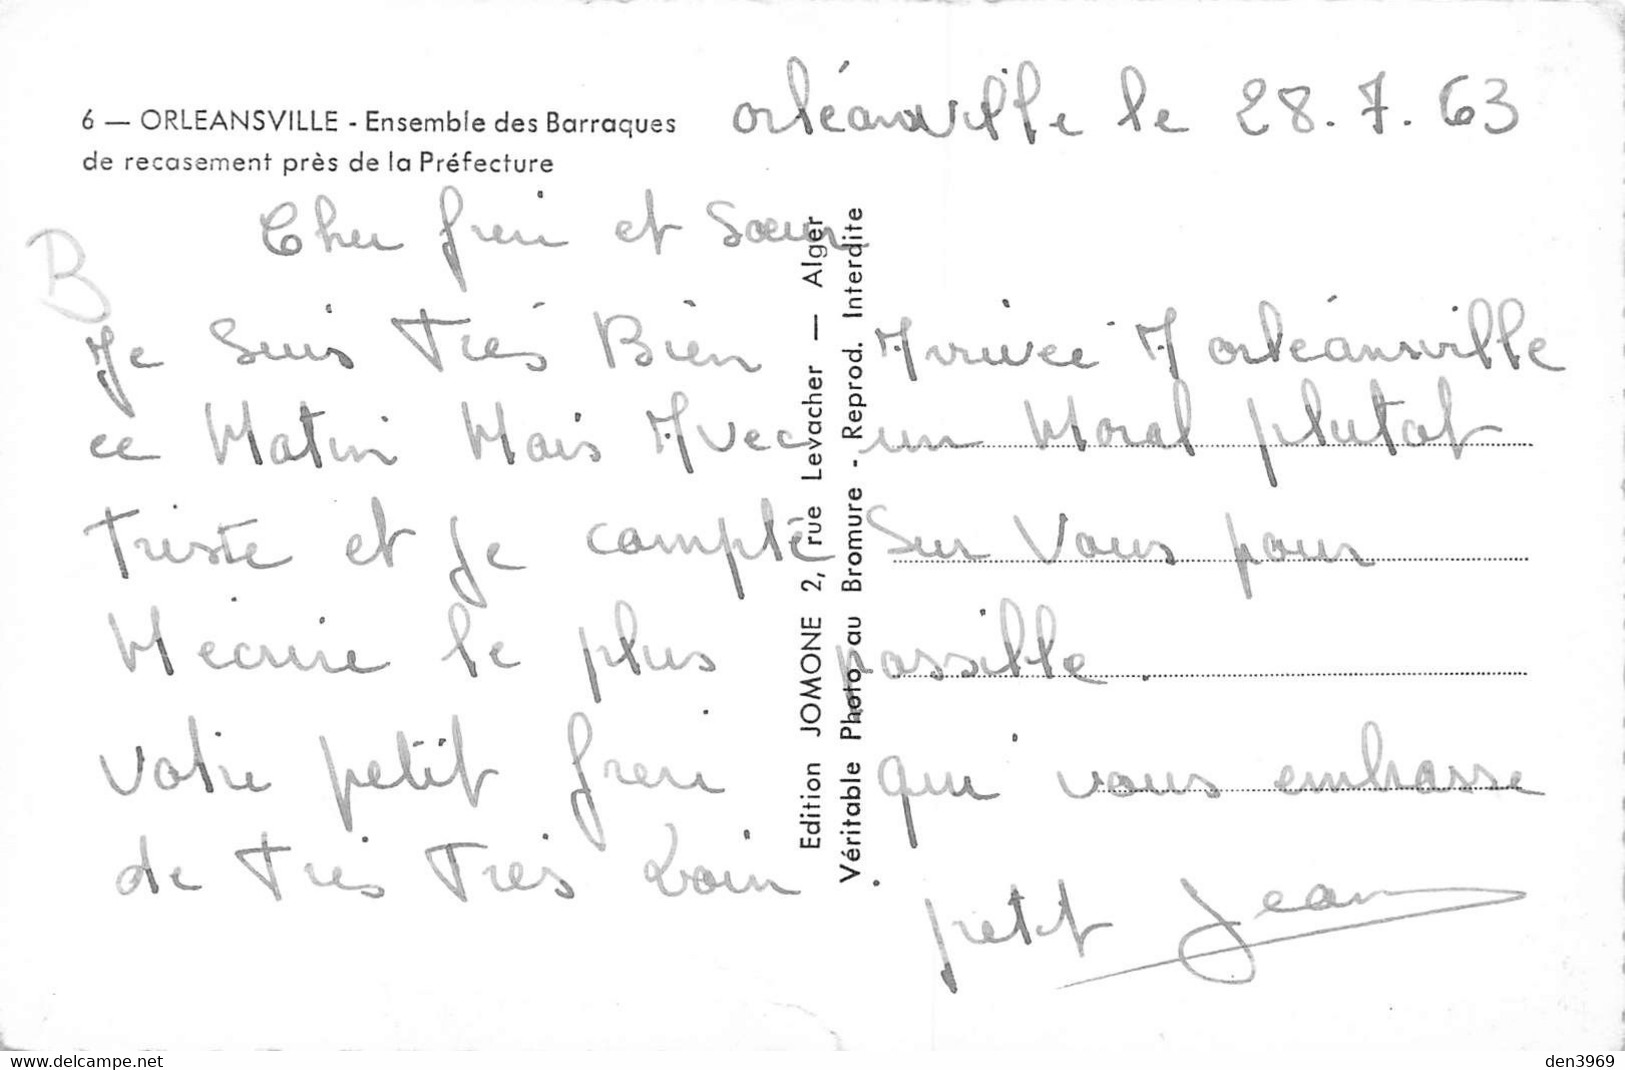 6 — ORLEANSVILLE - Ensemble des Barraques
de recasement près de la Préfecture
orléansville le 28.7.63
Cher frere et Sœur
B
Je Suis Très Bien Arrivée A orléansville
ce Matin Mais Avec un Moral plutot
Triste et je compte Sur Vous pour
Mecrire le plus possible.
Votre petit frere qui vous embrasse
de Très Très Loin.
petit Jean
Edition JOMONE 2, rue Levacher — Alger
Véritable Photo au Bromure - Reprod. Interdite
delcampe.net
den3969